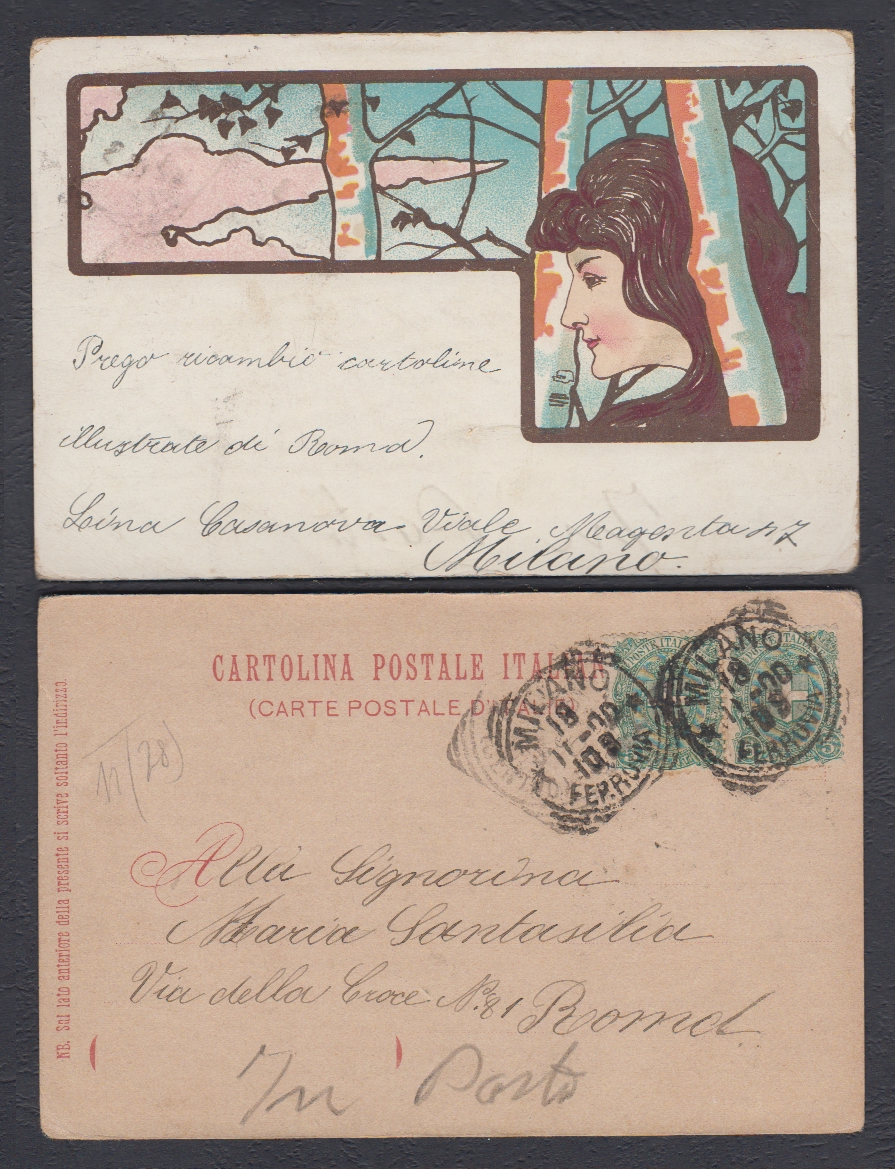 Prego ricambio cartoline
illustrate di Roma.
Lina Casanova Viale Magenta n 7
Milano.
CARTOLINA POSTALE ITALIANA
(CARTE POSTALE D'ITALIE)
NB. Sul lato anteriore della presente si scrive soltanto l'indirizzo.
11 (28)
MILANO
18
11-00
10 S
FERROVIA
MILANO
18
11-00
10 S
FERROVIA
Alla Signorina
Maria Santasilia
Via della Croce N. 81 Roma